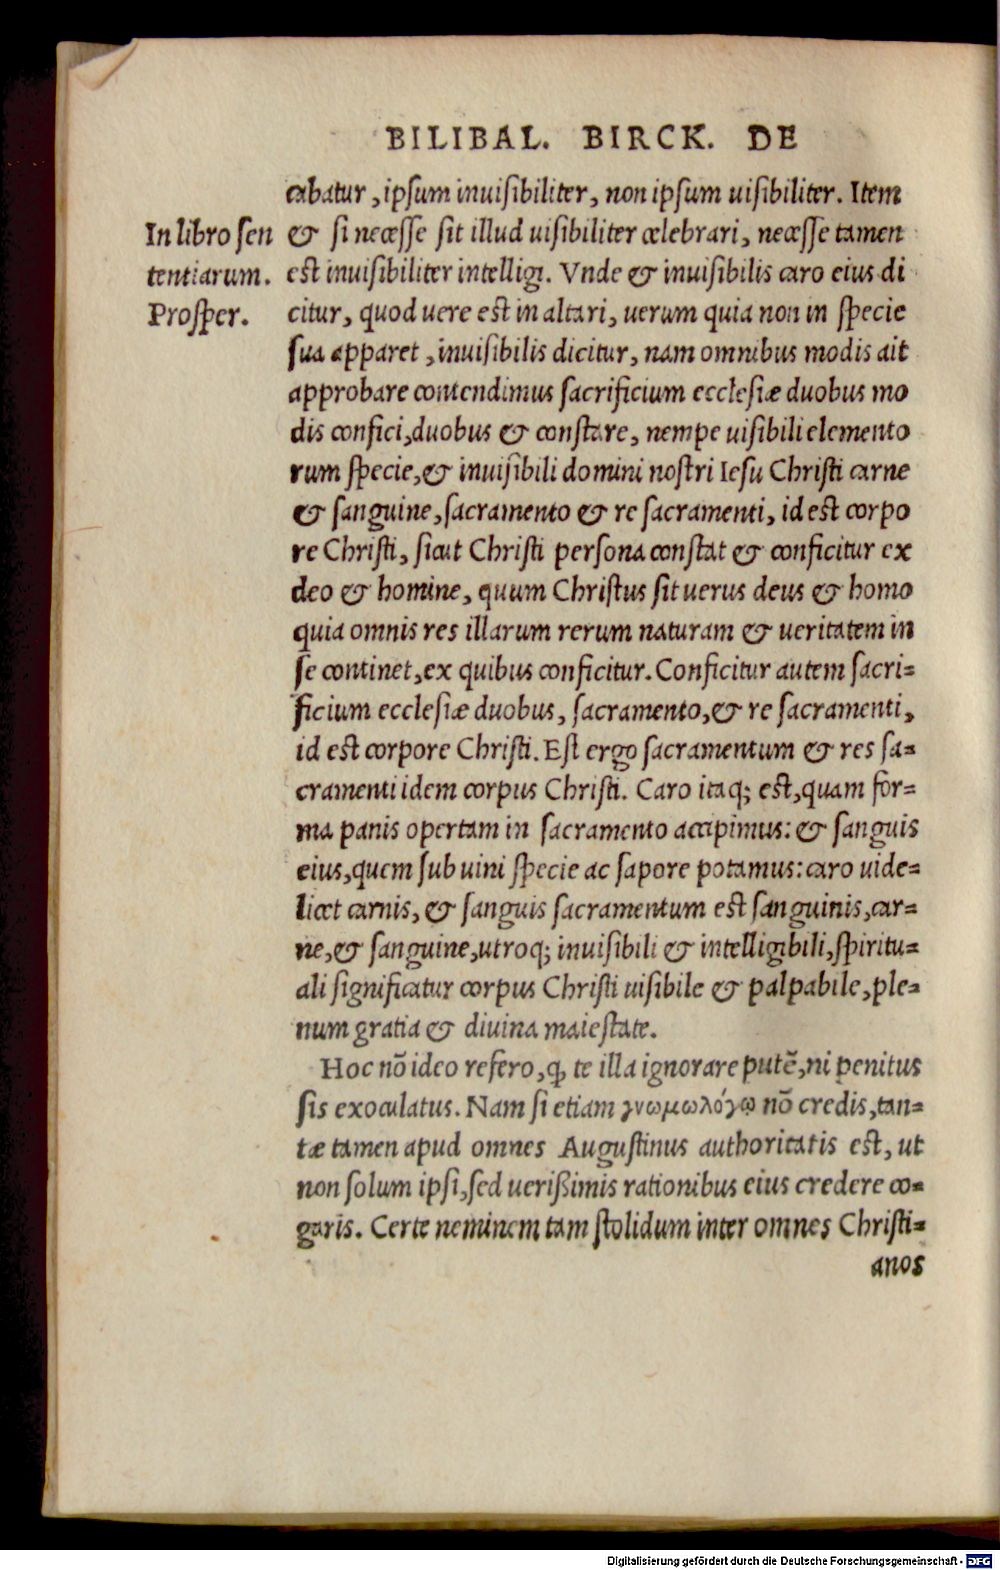 BILIBAL. BIRCK. DE
cabatur, ipsum inuisibiliter, non ipsum uisibiliter. Item
In libro sen
tentiarum.
Prosper.
& si necesse sit illud uisibiliter celebrari, necesse tamen
est inuisibiliter intelligi. Vnde & inuisibilis caro eius di
citur, quod uere est in altari, uerum quia non in specie
sua apparet, inuisibilis dicitur, nam omnibus modis ait
approbare contendimus sacrificium ecclesiæ duobus mo
dis confici, duobus & constare, nempe uisibili elemento
rum specie, & inuisibili domini nostri Iesu Christi carne
& sanguine, sacramento & re sacramenti, id est corpo
re Christi, sicut Christi persona constat & conficitur ex
deo & homine, quum Christus sit uerus deus & homo
quia omnis res illarum rerum naturam & ueritatem in
se continet, ex quibus conficitur. Conficitur autem sacri=
ficium ecclesiæ duobus, sacramento, & re sacramenti,
id est corpore Christi. Est ergo sacramentum & res sa=
cramenti idem corpus Christi. Caro itaq; est, quam for=
ma panis opertam in sacramento accipimus: & sanguis
eius, quem sub uini specie ac sapore potamus: caro uide=
licet carnis, & sanguis sacramentum est sanguinis, car=
ne, & sanguine, utroq; inuisibili & intelligibili, spiritu=
ali significatur corpus Christi uisibile & palpabile, ple=
num gratia & diuina maiestate.
Hoc nō ideo refero, ꝙ te illa ignorare putē, ni penitus
sis exoculatus. Nam si etiam γνωμωλόγῳ nō credis, tan=
tæ tamen apud omnes Augustinus authoritatis est, ut
non solum ipsi, sed uerißimis rationibus eius credere co=
garis. Certe neminem tam stolidum inter omnes Christi=
anos
Digitalisierung gefördert durch die Deutsche Forschungsgemeinschaft - DFG